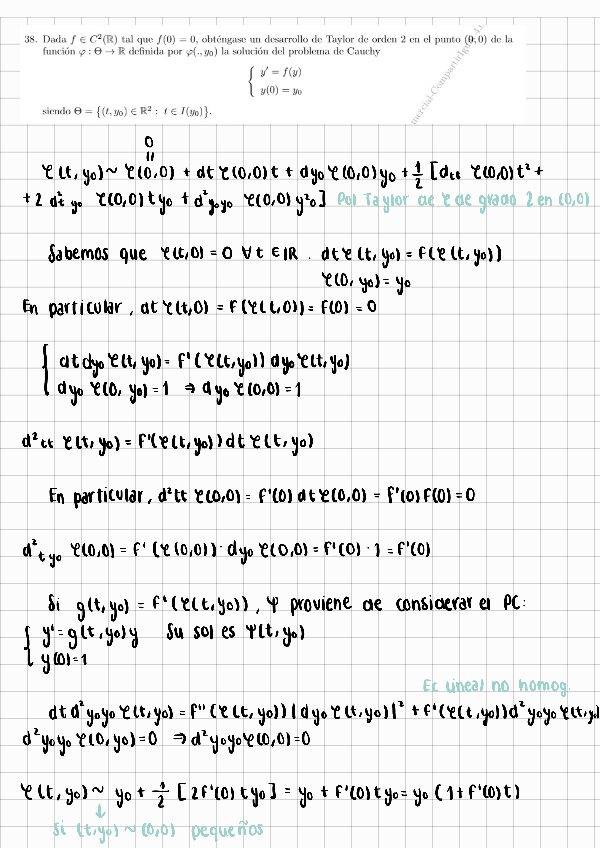 38. Dada f ∈ C²(ℝ) tal que f(0) = 0, obténgase un desarrollo de Taylor de orden 2 en el punto (0,0) de la
función φ : Θ → ℝ definida por φ(·, y₀) la solución del problema de Cauchy
{ y' = f(y)
y(0) = y₀
siendo Θ = {(t, y₀) ∈ ℝ² : t ∈ I(y₀)}.
0
φ(t, y₀) ~ φ(0,0) + dt φ(0,0) t + dy₀ φ(0,0) y₀ + 1/2 [dtt φ(0,0) t² +
+ 2 d²t y₀ φ(0,0) t y₀ + d²y₀y₀ φ(0,0) y²₀] Pol Taylor de φ de grado 2 en (0,0)
Sabemos que φ(t,0) = 0 ∀t ∈ ℝ . dt φ(t, y₀) = f(φ(t, y₀))
φ(0, y₀) = y₀
En particular, dt φ(t,0) = f(φ(t,0)) = f(0) = 0
{ dt dy₀ φ(t, y₀) = f'(φ(t, y₀)) dy₀ φ(t, y₀)
dy₀ φ(0, y₀) = 1 ⇒ dy₀ φ(0,0) = 1
d²tt φ(t, y₀) = f'(φ(t, y₀)) dt φ(t, y₀)
En particular, d²tt φ(0,0) = f'(0) dt φ(0,0) = f'(0) f(0) = 0
d²t y₀ φ(0,0) = f'(φ(0,0)) · dy₀ φ(0,0) = f'(0) · 1 = f'(0)
Si g(t, y₀) = f'(φ(t, y₀)), ψ proviene de considerar el PC:
{ y' = g(t, y₀) y Su sol es ψ(t, y₀)
y(0) = 1
Ec lineal no homog.
dt d²y₀y₀ φ(t, y₀) = f''(φ(t, y₀)) (dy₀ φ(t, y₀))² + f'(φ(t, y₀)) d²y₀y₀ φ(t, y₀)
d²y₀y₀ φ(0, y₀) = 0 ⇒ d²y₀y₀ φ(0,0) = 0
φ(t, y₀) ~ y₀ + 1/2 [2f'(0) t y₀] = y₀ + f'(0) t y₀ = y₀ (1 + f'(0) t)
↓
Si (t, y₀) ~ (0,0) pequeños